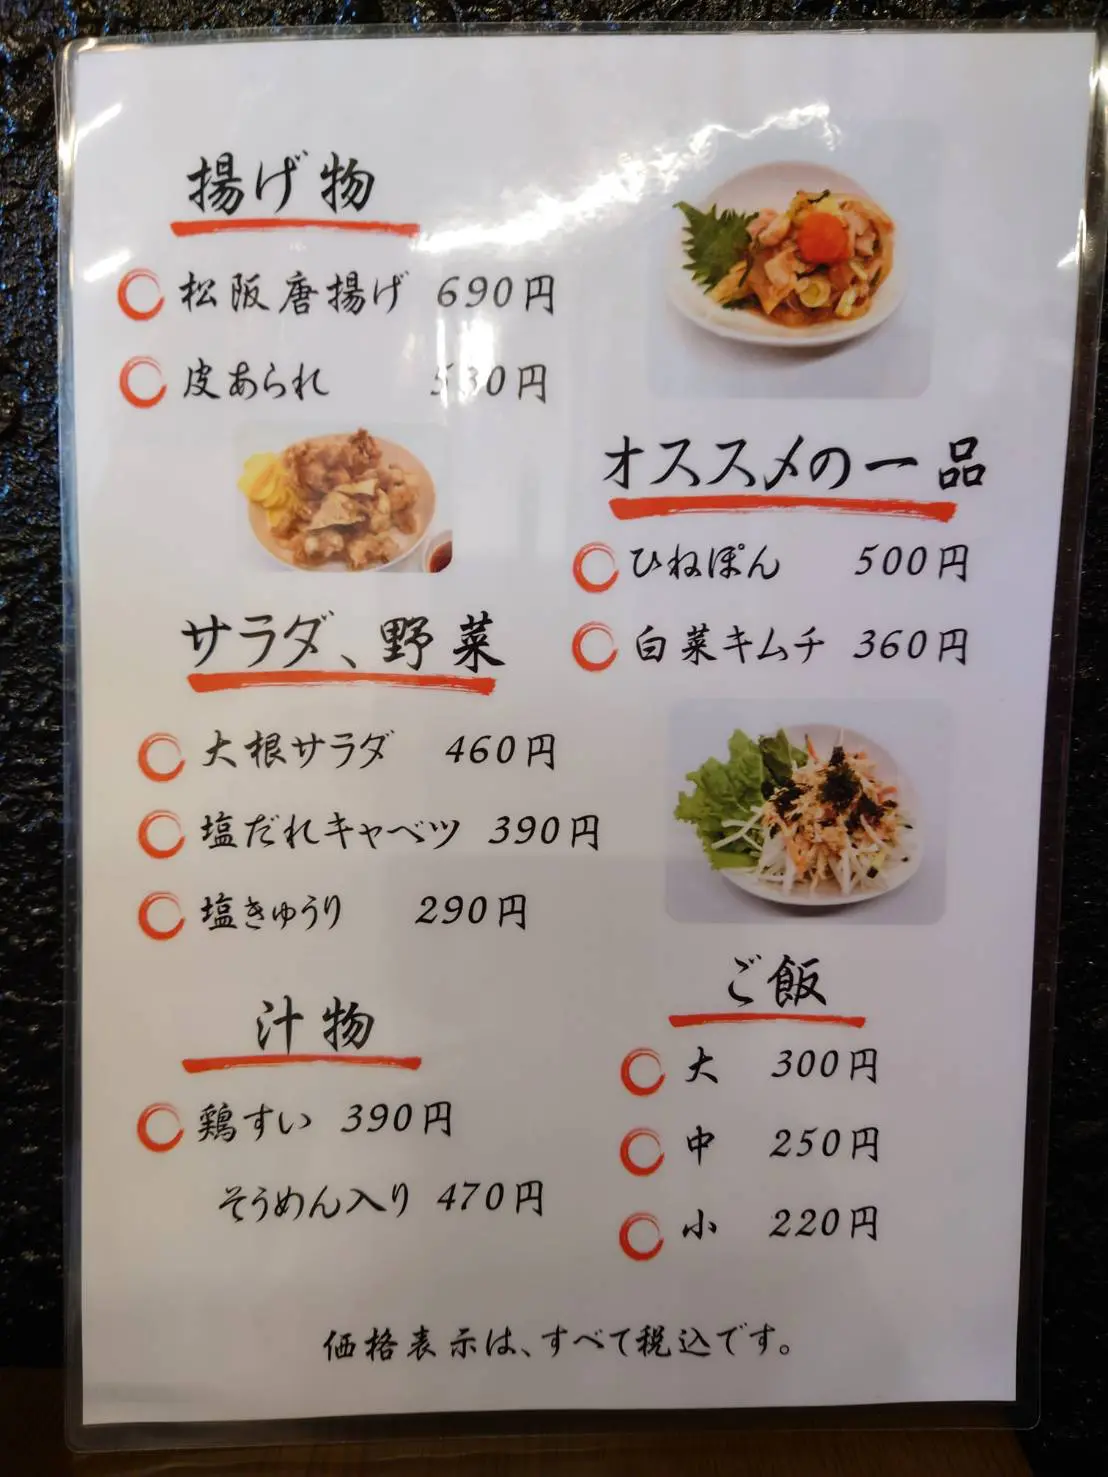 揚げ物
松阪唐揚げ 690円
皮あられ 530円
サラダ、野菜
大根サラダ 460円
塩だれキャベツ 390円
塩きゅうり 290円
汁物
鶏すい 390円
そうめん入り 470円
オススメの一品
ひねぽん 500円
白菜キムチ 360円
ご飯
大 300円
中 250円
小 220円
価格表示は、すべて税込です。